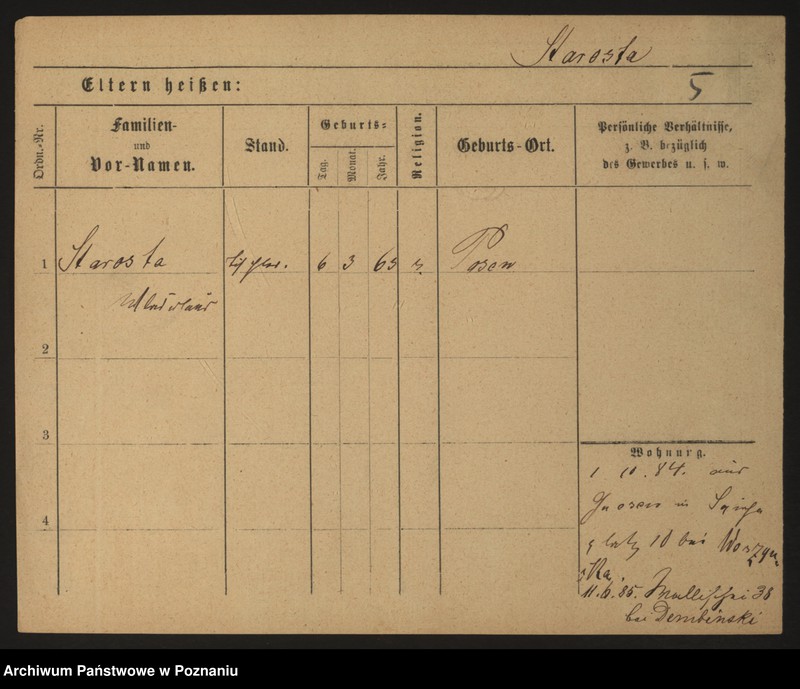 Starosta
5
Eltern heißen:
Ordn.-Nr.
Familien-
und
Vor-Namen.
Stand.
Geburts-
Tag.
Monat.
Jahr.
Religion.
Geburts-Ort.
Persönliche Verhältnisse,
z. B. bezüglich
des Gewerbes u. s. w.
1 Starosta 6 3 Posen
2
3
4
Wohnung.
1 10. 84. aus
Gnesen
10 bei
11. 6. 85. Wallischei 38
bei Dembinski
Archiwum Państwowe w Poznaniu